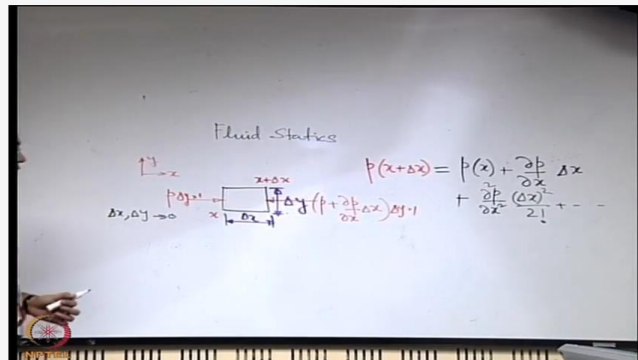 Fluid Statics
y
x
x+Δx
p Δy·1
Δy
(p + ∂p/∂x Δx) Δy·1
x
Δx
Δx, Δy → 0
p(x+Δx) = p(x) + ∂p/∂x Δx
+ ∂²p/∂x² (Δx)²/2! + - -
NPTEL